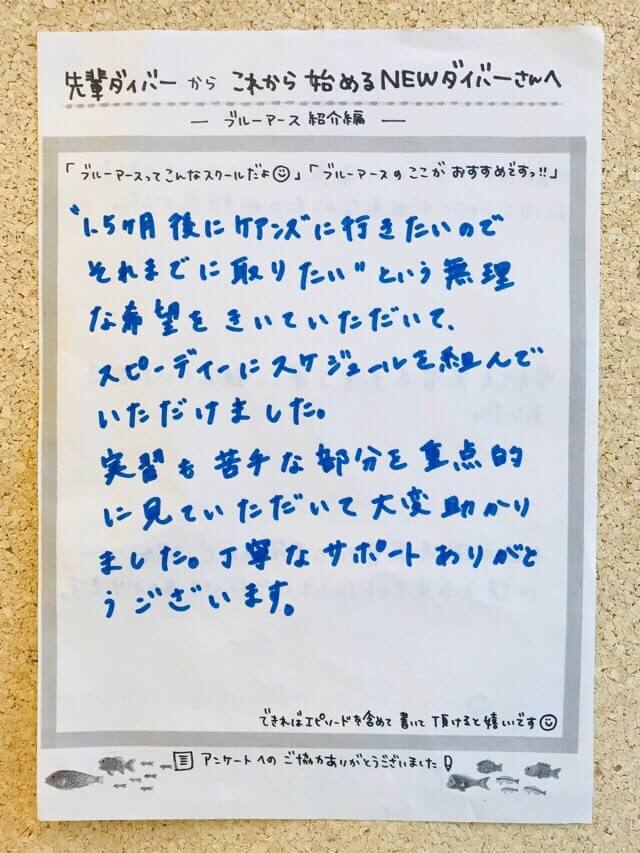 先輩ダイバーから これから 始めるNEWダイバーさんへ
ー ブルーアース 紹介編 ー
「ブルーアースってこんなスクールだよ☺」「ブルーアースの ここが おすすめですっ!!」
“1.5ヶ月後にケアンズに行きたいので
それまでに取りたい”という無理
な希望をきいていただいて、
スピーディーにスケジュールを組んで
いただけました。
実習も苦手な部分を重点的
に見ていただいて大変助かり
ました。丁寧なサポートありがと
うございます。
できればエピソードを含めて書いて頂けると嬉しいです☺
アンケートへの ご協力ありがとうございました